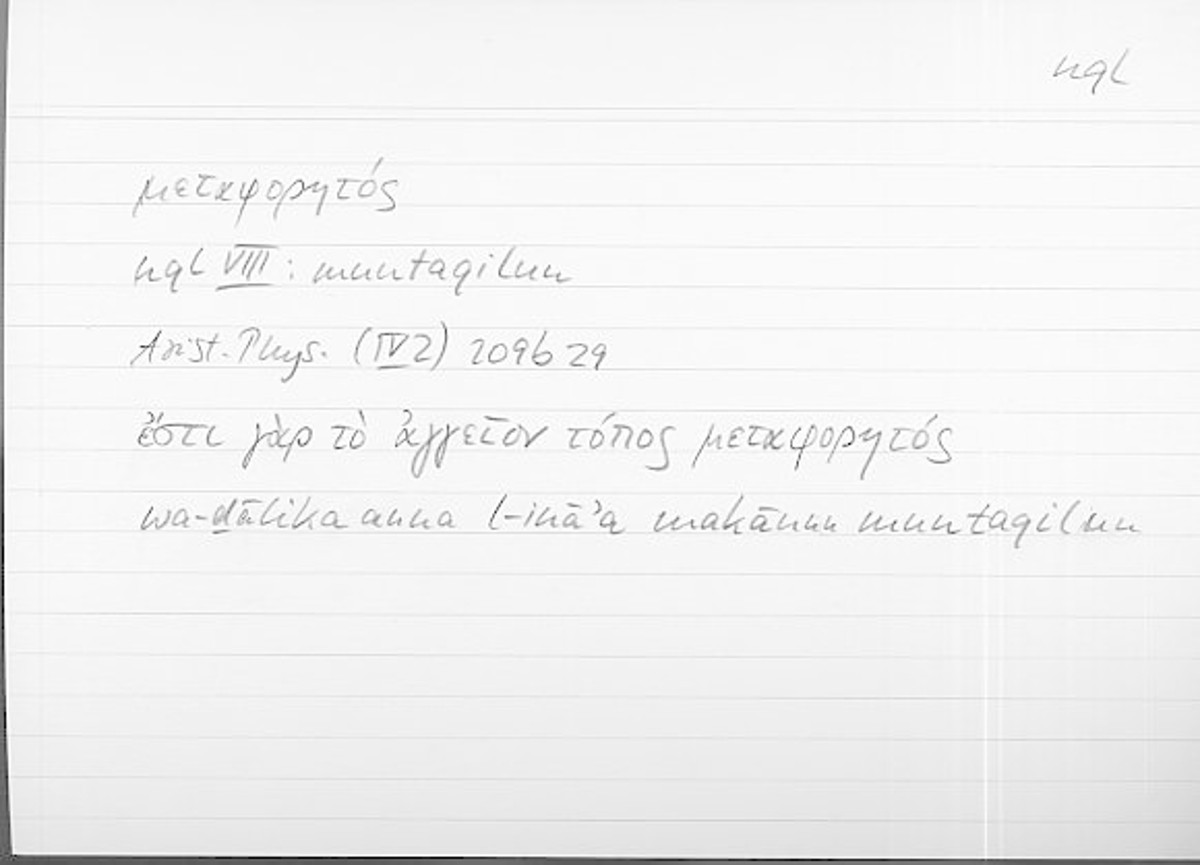 nql
μεταφορητός
nql VIII: muntaqilun
Arist. Phys. (IV 2) 209b 29
ἔστι γὰρ τὸ ἀγγεῖον τόπος μεταφορητός
wa-ḏālika anna l-ināʾa makānun muntaqilun